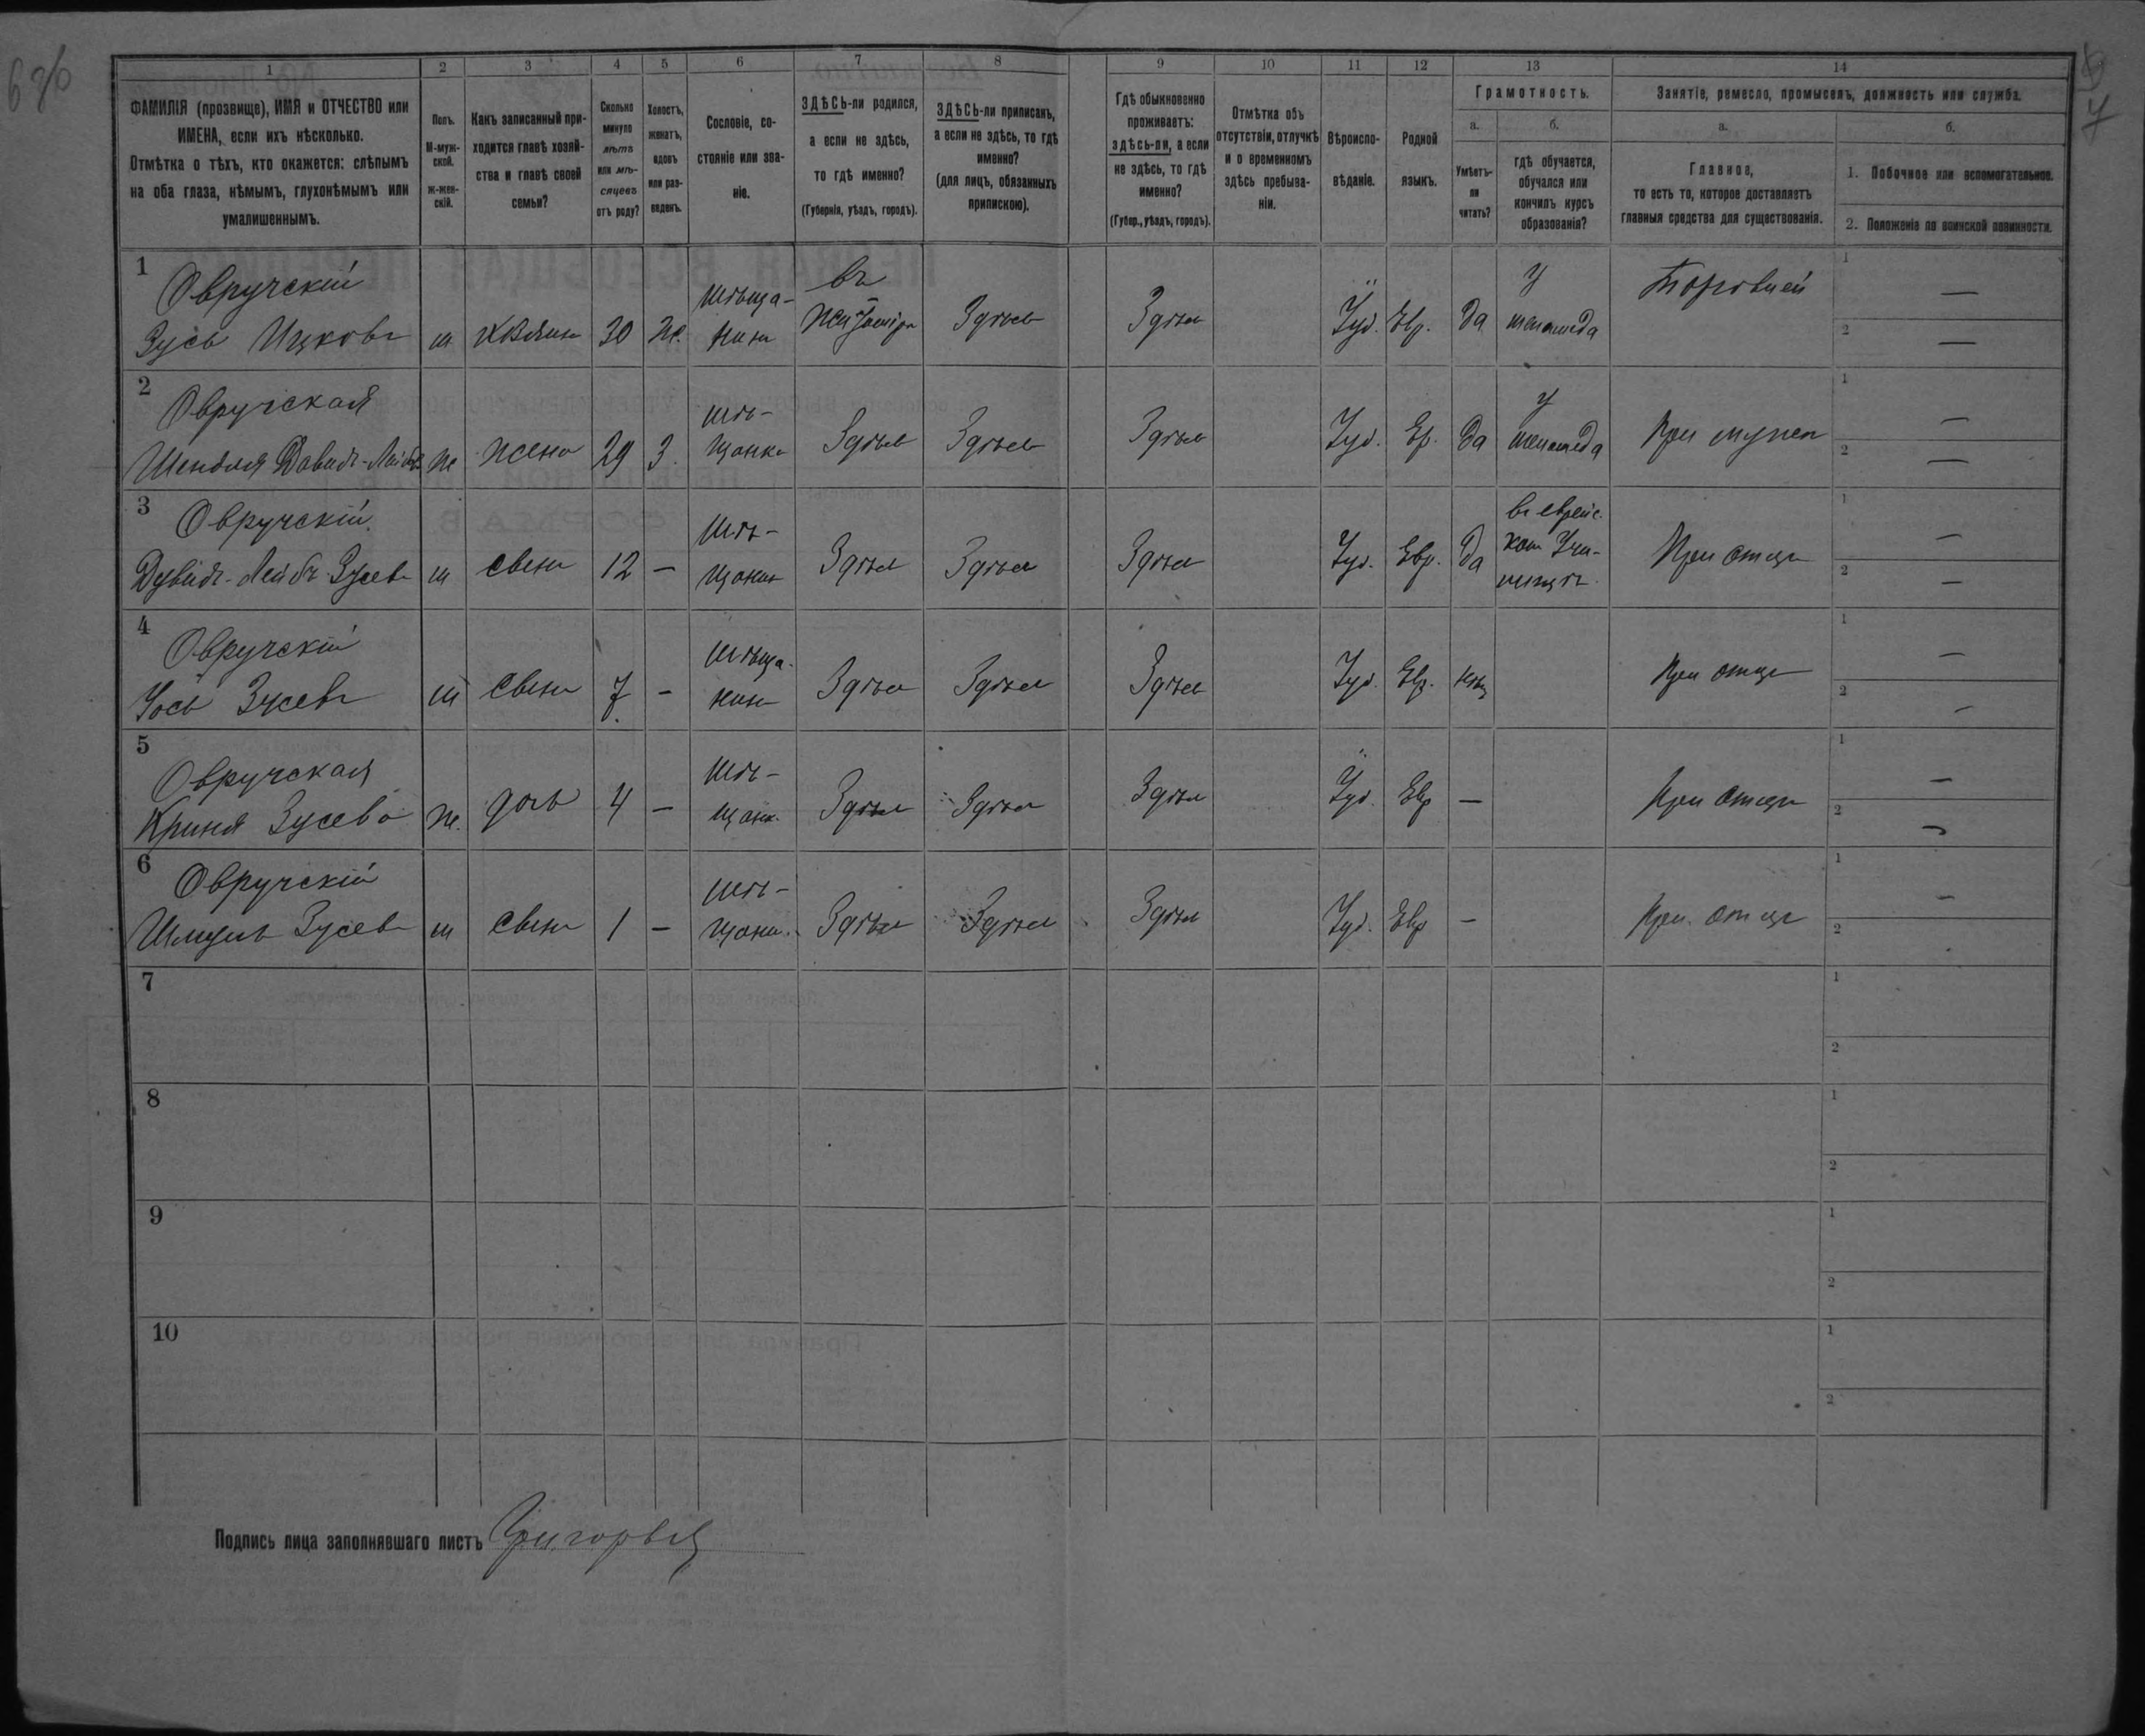 1 2 3 4 5 6 7 8 9 10 11 12 13 14
ФАМИЛІЯ (прозвище), ИМЯ и ОТЧЕСТВО или
ИМЕНА, если ихъ нѣсколько.
Отмѣтка о тѣхъ, кто окажется: слѣпымъ
на оба глаза, нѣмымъ, глухонѣмымъ или
умалишеннымъ.
Полъ.
М-муж-
ской.
ж-жен-
скій.
Какъ записанный при-
ходится главѣ хозяй-
ства и главѣ своей
семьи?
Сколько
минуло
лѣтъ
или мѣ-
сяцевъ
отъ роду?
Холостъ,
женатъ,
вдовъ
или раз-
веденъ.
Сословіе, со-
стояніе или зва-
ніе.
ЗДѢСЬ-ли родился,
а если не здѣсь,
то гдѣ именно?
(Губернія, уѣздъ, городъ).
ЗДѢСЬ-ли приписанъ,
а если не здѣсь, то гдѣ
именно?
(для лицъ, обязанныхъ
припискою).
Гдѣ обыкновенно
проживаетъ:
здѣсь-ли, а если
не здѣсь, то гдѣ
именно?
(Губер., уѣздъ, городъ).
Отмѣтка объ
отсутствіи, отлучкѣ
и о временномъ
здѣсь пребыва-
ніи.
Вѣроиспо-
вѣданіе.
Родной
языкъ.
Грамотность.
а.
Умѣетъ-
ли
читать?
б.
гдѣ обучается,
обучался или
кончилъ курсъ
образованія?
Занятіе, ремесло, промыселъ, должность или служба.
а.
Главное,
то есть то, которое доставляетъ
главныя средства для существованія.
б.
1. Побочное или вспомогательное.
2. Положеніе по воинской повинности.
1
Овручскій
Зусь Ицковъ м хозяинъ 30 ж.
мѣща-
нинъ
въ
Житомірѣ
Здѣсь Здѣсь Іуд. Евр. да
у
меламеда
Торговлей
1 —
2 —
2
Овручская
Шендля Давидъ-Лейб ж жена 29 З.
мѣ-
щанка
Здѣсь Здѣсь Здѣсь Іуд. Ер. да
у
меламеда
При мужѣ
1 —
2 —
3
Овручскій
Дувидъ-Лейбъ Зусевъ м сынъ 12 —
мѣ-
щанин
Здѣсь Здѣсь Здѣсь Іуд. Евр. да
въ еврейс.
ком Учи-
лищѣ.
При отцѣ
1 —
2 —
4
Овручскій
Іось Зусевъ м сынъ 7 —
мѣща-
нинъ
Здѣсь Здѣсь Здѣсь Іуд. Евр. нѣтъ
При отцѣ
1 —
2 —
5
Овручская
Криня Зусева ж. дочь 4 —
мѣ-
щанк.
Здѣсь Здѣсь Здѣсь Іуд. Евр —
При отцѣ
1 —
2 —
6
Овручскій
Шмуль Зусевъ м сынъ 1 —
мѣ-
щани.
Здѣсь Здѣсь Здѣсь Іуд. Евр —
При отцѣ
1 —
2
7
1
2
8
1
2
9
1
2
10
1
2
Подпись лица заполнявшаго листъ Григорьев